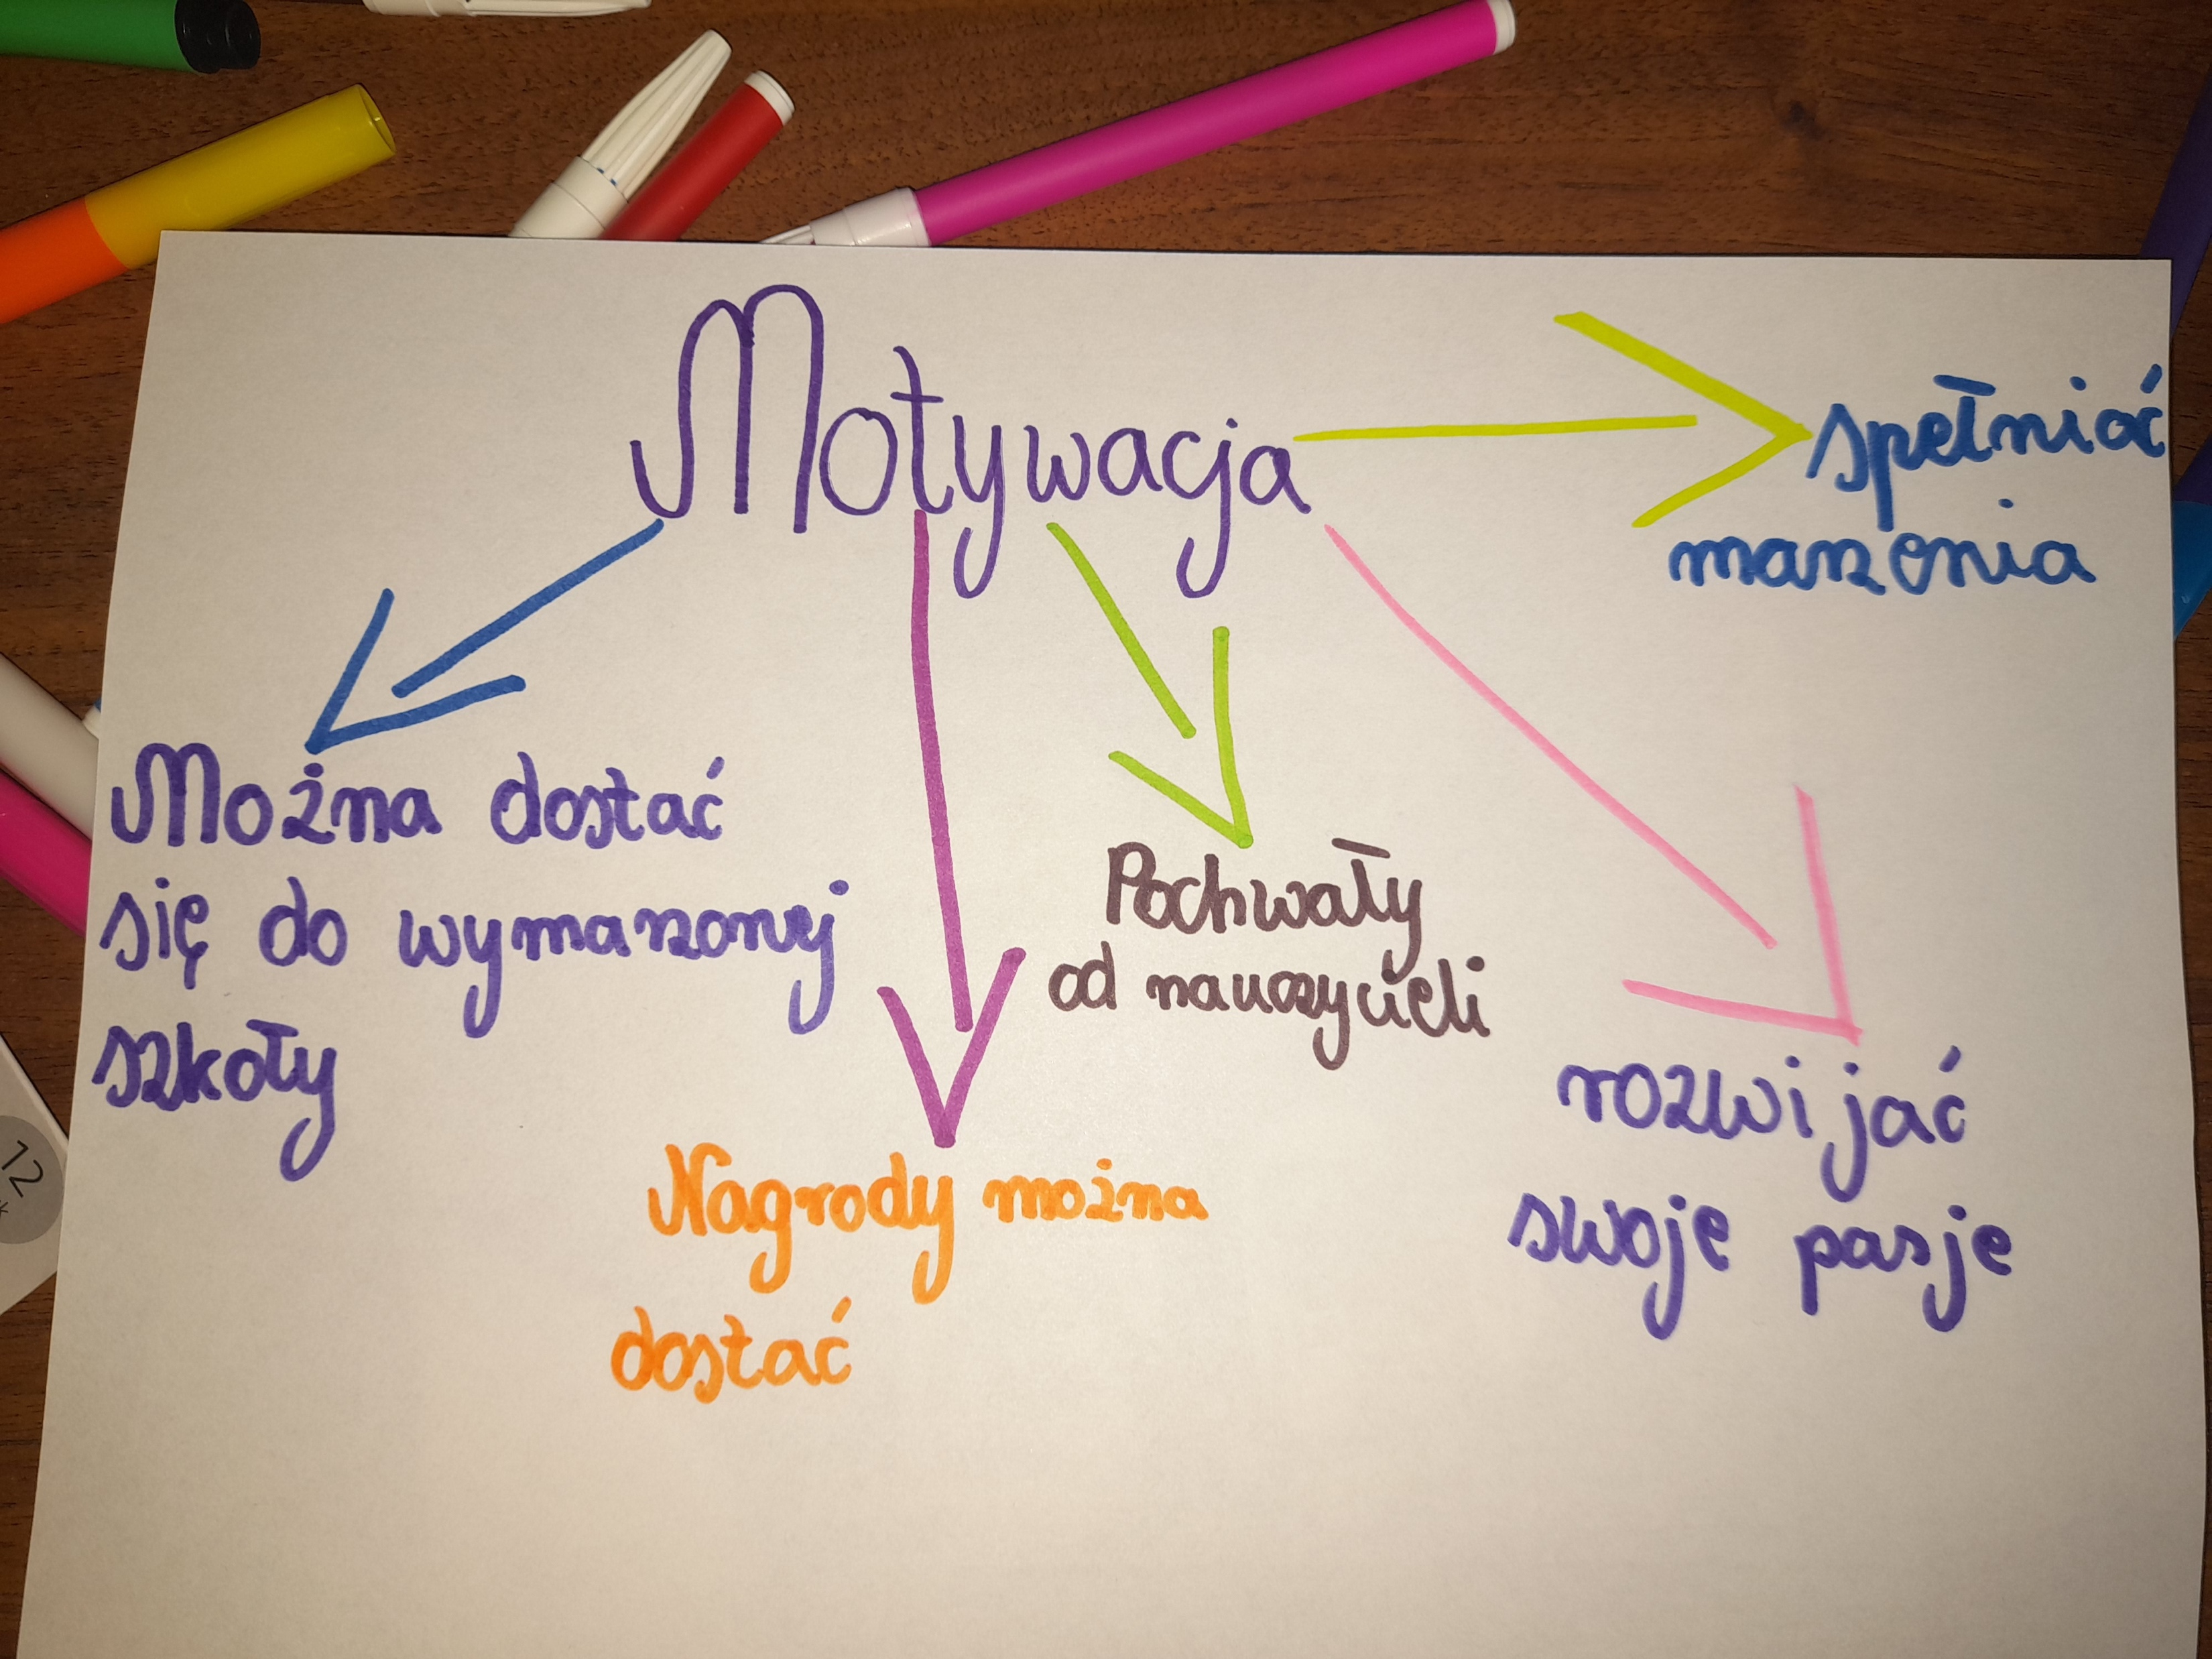 Motywacja
spełniać
marzenia
Można dostać
się do wymarzonej
szkoły
Pochwały
od nauczycieli
rozwijać
swoje pasje
Nagrody można
dostać
12
*